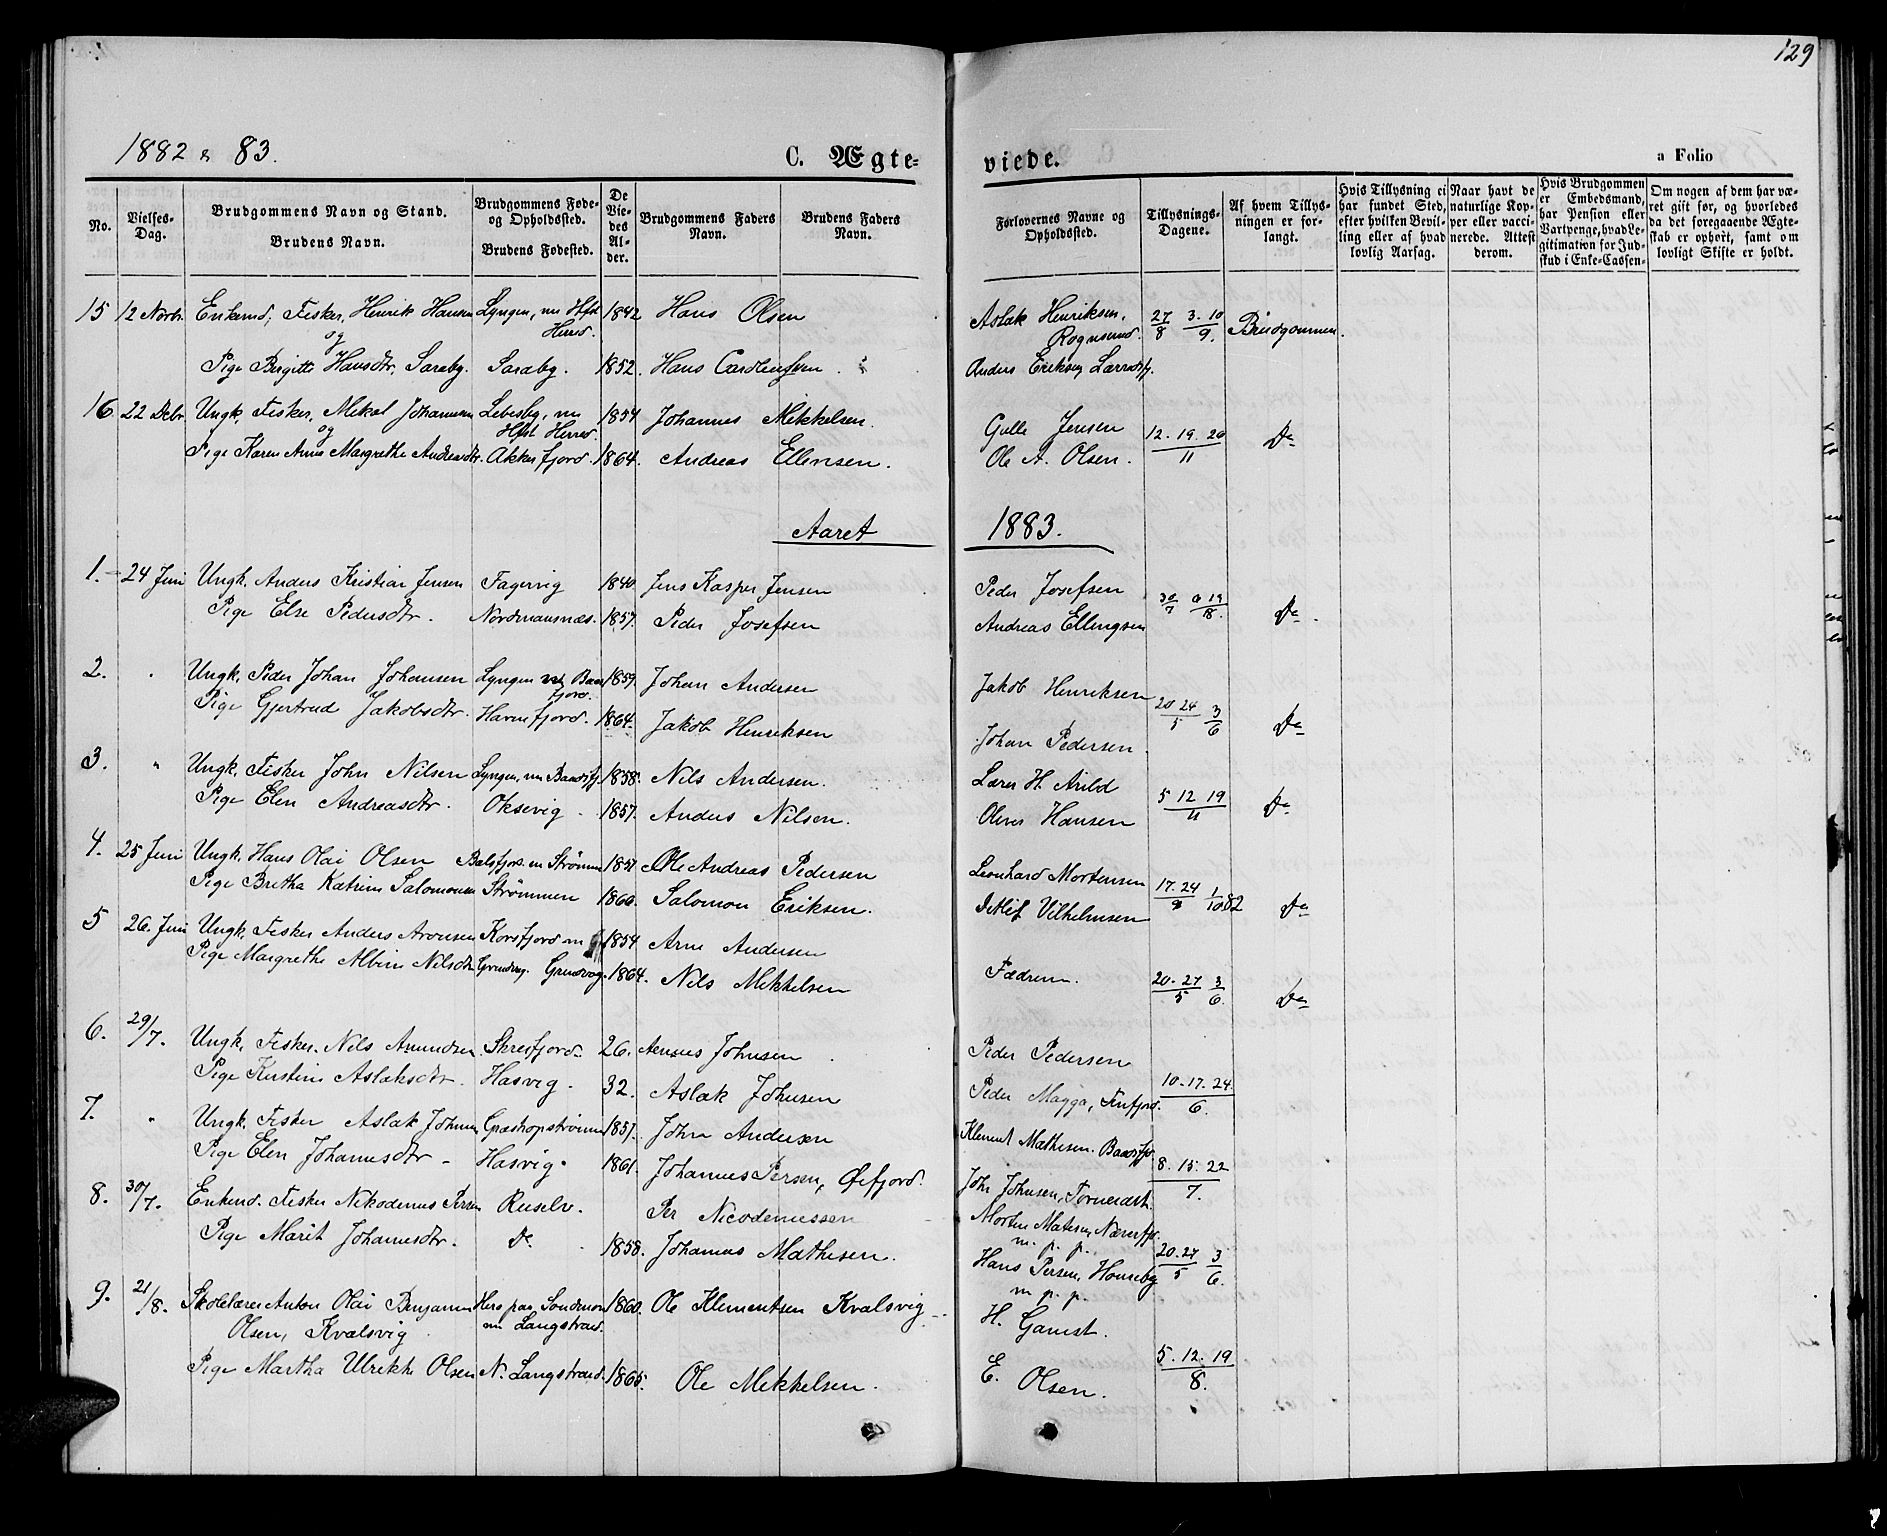 129
1882 & 83.
C. Ægte-
viede.
a Folio
No.
Vielses-Dag.
Brudgommens Navn og Stand.
Brudens Navn.
Brudgommens Føde- og Opholdssted.
Brudens Fødested.
De Viedes Alder.
Brudgommens Faders Navn.
Brudens Faders Navn.
Forlovernes Navne og Opholdssted.
Tillysnings-Dagene.
Af hvem Tillysningen er forlangt.
Hvis Tillysning ei har fundet Sted, efter hvilken Bevilling eller af hvad lovlig Aarsag.
Naar havt de naturlige Kopper eller vaccinerede. Attest derom.
Hvis Brudgommen er Embedsmand, har Pension eller Vartpenge, hvad Legitimation for Indskud i Enke-Cassen-
Om nogen af dem har været gift før, og hvorledes da det foregaaende Ægteskab er ophørt, samt om lovligt Skifte er holdt.
15 12 Novbr. Enkemd, Fisker, Henrik Hansen Lyngen, nu Hfst Herred. 1842 Hans Olsen Aslak Henriksen, Rognsund. 27/8 3. 10/9. Brudgommen.
og
Pige Birgitte Hansdtr. Saraby. Saraby. 1852. Hans Anders Eriksen
16 22 Debr. Ungk. Fisker, Mikal Johannesen Lebesby, nu Hfst Herred. 1854 Johannes Mikkelsen. Gulle Jensen 12. 19. 26/11 Do
og
Pige Karen Anne Margrethe Andreasdtr. Akkarfjord. 1864. Andreas Ellensen. Ole A. Olsen.
Aaret 1883.
1. 24 Juni Ungk. Anders Kristian Jensen Fagervig 1840. Jens Kasper Jensen Peder Josefsen Do
Pige Else Pedersdtr. Nordmansnæs. 1857. Peder Josefsen Andreas Ellingsen
2. " Ungk. Peder Johan Johansen Lyngen 1859. Johan Andersen Jakob Henriksen 20 24/5 3/6 Do
Pige Gjertrud Jakobsdtr. 1864. Jakob Henriksen Johan Pedersen.
3. " Ungk. Fisker John Nilsen Lyngen, nu 1858. Nils Andersen. Lærer H. Arild 5 12 19/11 Do
Pige Elen Andreasdtr. Oksevig. 1857. Anders Nilsen. Oliver Hansen
4. 25 Juni Ungk. Hans Olai Olsen Balsfjord. nu Strømmen 1857 Ole Andreas Pedersen Leonhard Mortensen 17. 24/9 1/10 82 Do
Pige Bretha Katrine Salomonsen Strømmen 1860. Salomon Eriksen. Detlef Vilhelmsen
5 26. Juni Ungk. Fisker Anders Aronsen Korsfjord nu 1854 Arne Andersen Fædrene. 20. 27/5 3/6. Do
Pige Margrethe Albine Nilsdtr. 1864. Nils Mikkelsen
6. 29/7. Ungk. Fisker. Nils Amundsen Skreifjord. 26. Johnsen Peder Pedersen 10. 17. 24./6.
Pige Kirstine Aslaksdtr. Hasvig. 32. Aslak Johnsen Peder Magga,
7. " Ungk. Fisker Aslak Johnsen 1857. John Andersen Klement Mathisen. 8. 15. 22/7.
Pige Elen Johannesdtr. Hasvig. 1861. Johannes Persen, Øxfjord. John Johnsen,
8. 30/7. Enkemd. Fisker Nikodemus Persen Ruselv. Per Nicodemussen Morten Matisen, m. p. p. 20. 27/5 3/6.
Pige Marit Johannesdtr. Do. 1858. Johannes Mathisen. Hans Persen, Honseby m. p. p.
9. 21/8. Skolelærer Anton Olai Benjamin Olsen, Kvalsvig Herø paa Søndmør nu Langstrand. 1860. Ole Klementsen Kvalsvig H. Gamst. 5. 12. 19/8.
Pige Martha Ulrikke Olsen N. Langstrand. 1865. Ole Mikkelsen. E. Olsen.